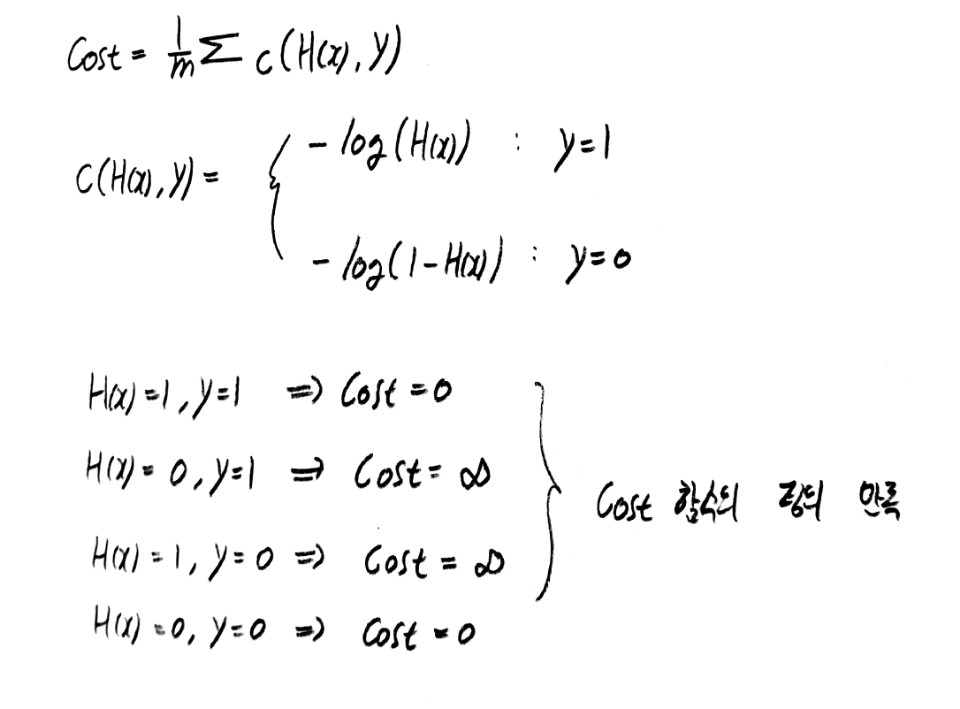 Cost = 1/m Σ c(H(x), y)
C(H(x), y) =
- log(H(x)) : y=1
- log(1-H(x)) : y=0
H(x)=1, y=1 => Cost = 0
H(x)=0, y=1 => Cost = ∞
H(x)=1, y=0 => Cost = ∞
H(x)=0, y=0 => Cost = 0
Cost 함수의 정의 만족